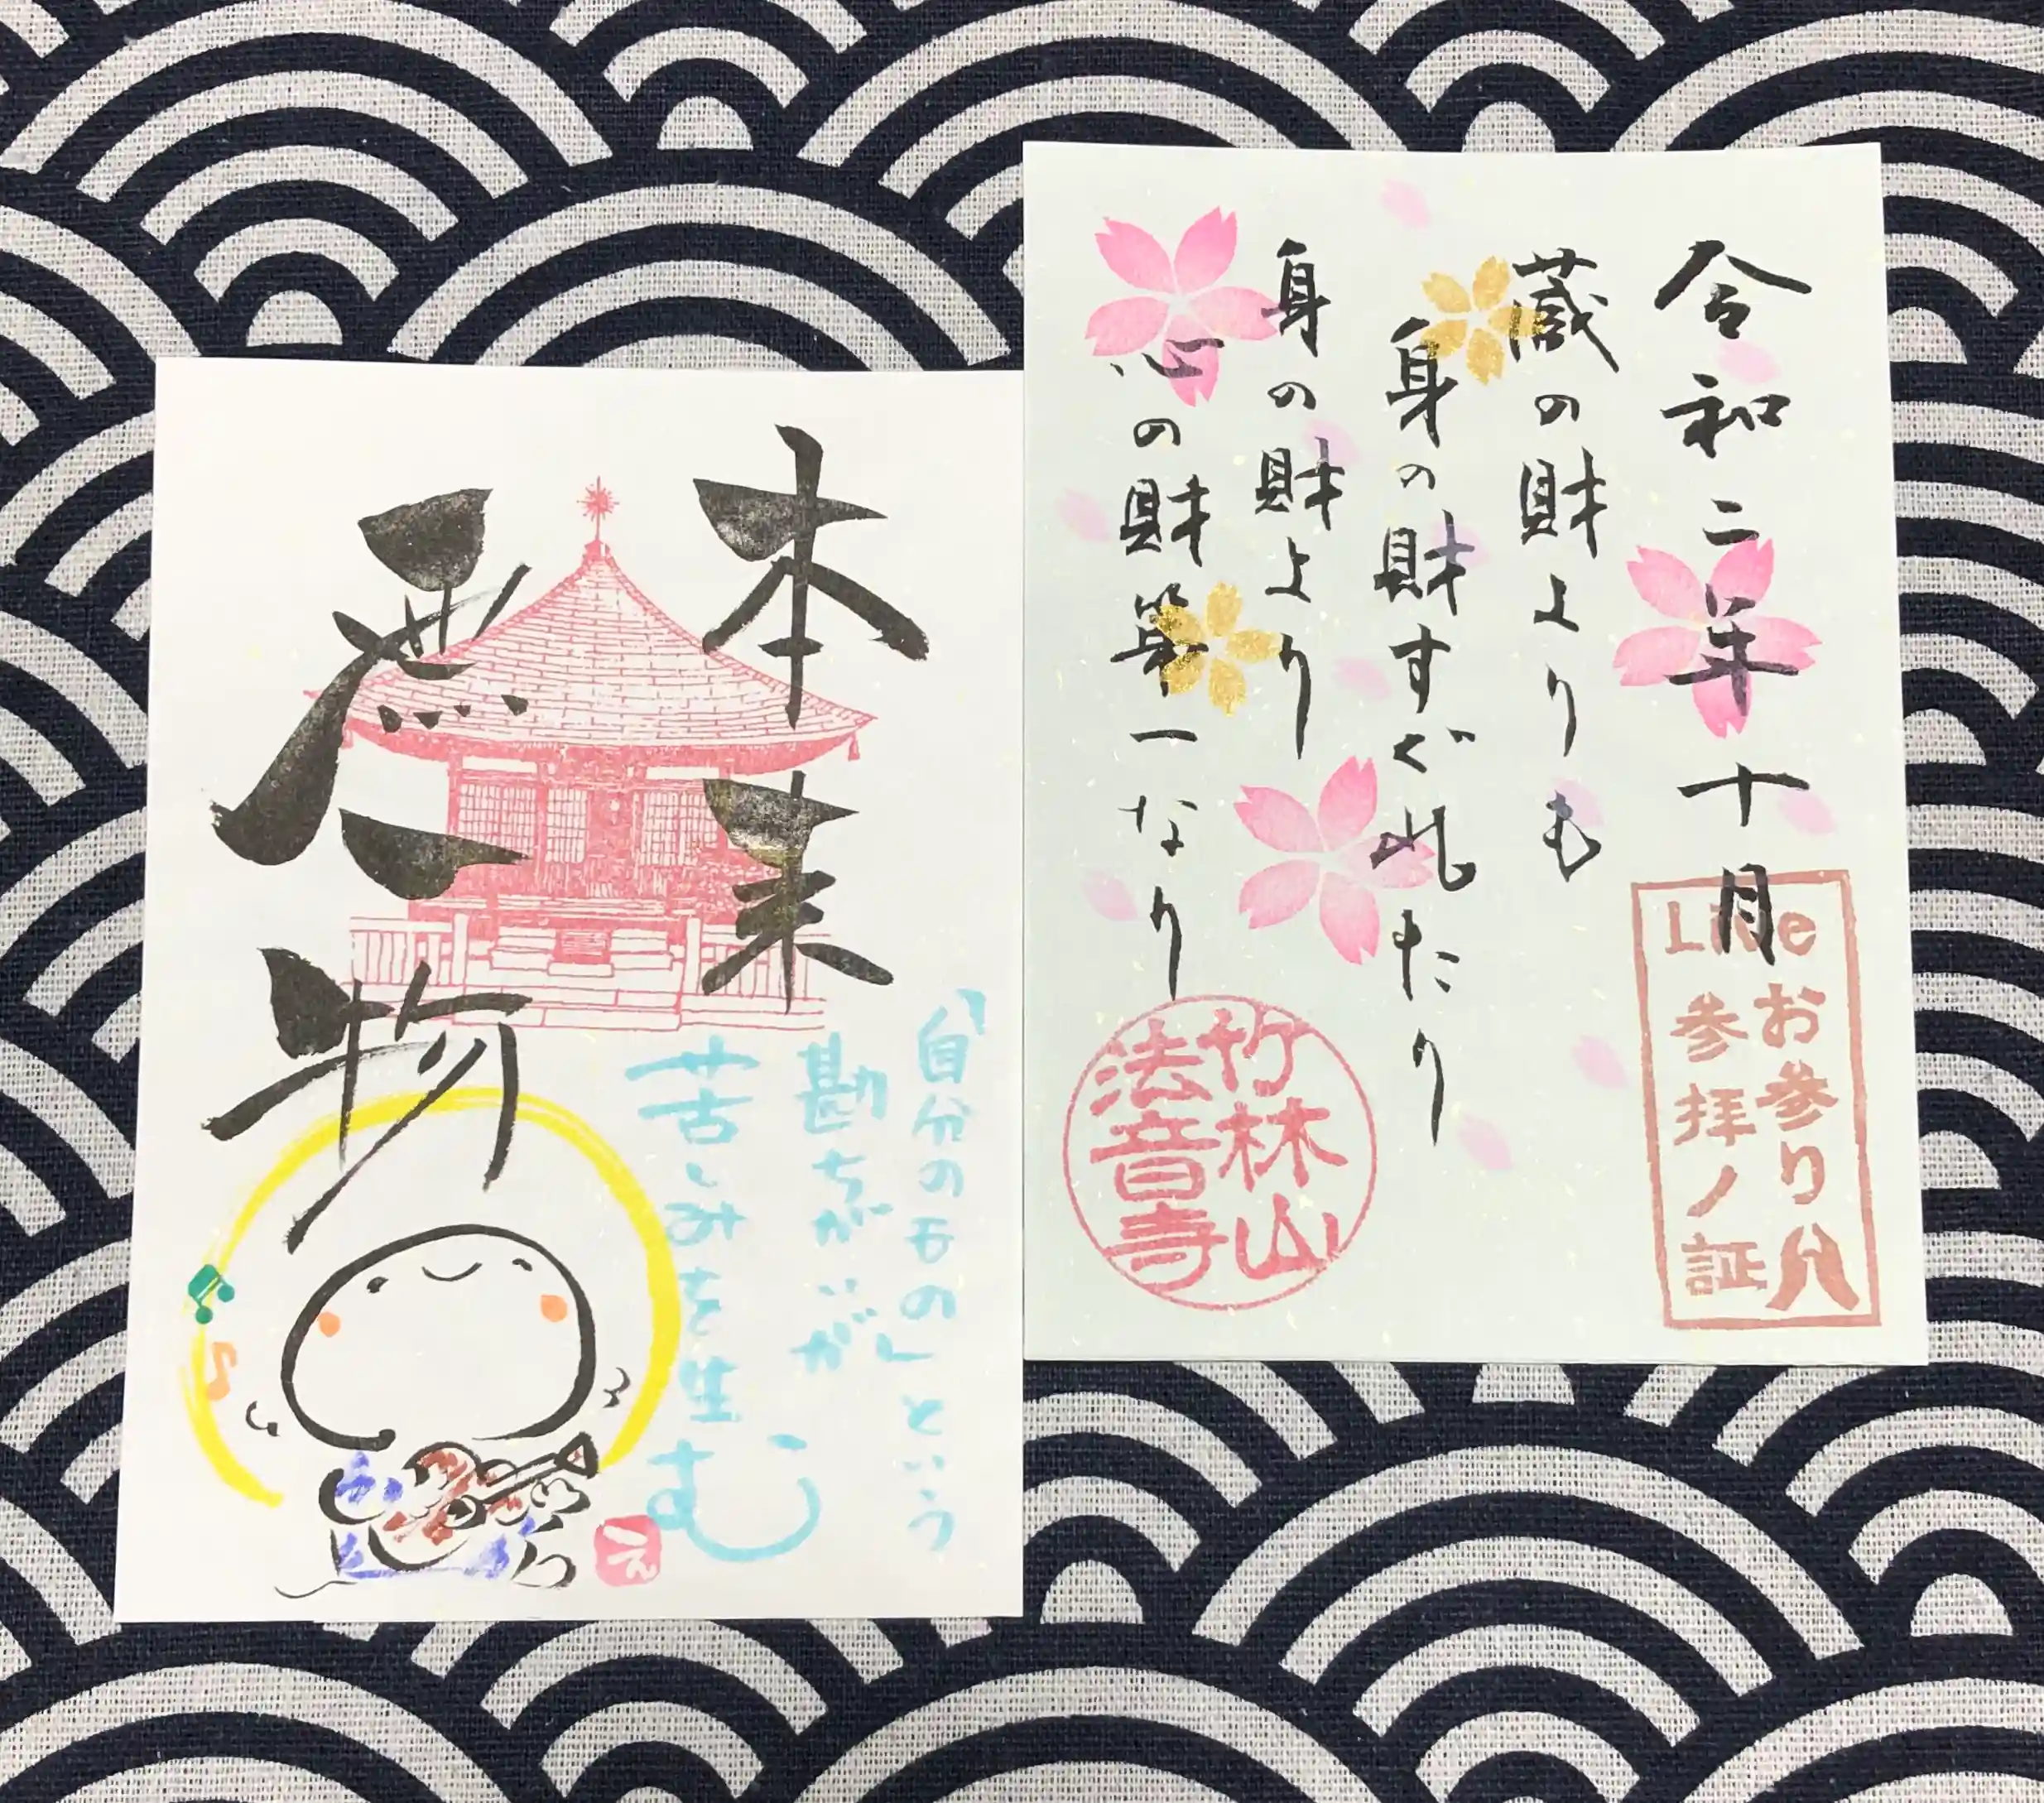 令和二年十月
蔵の財よりも
身の財すぐれたり
身の財より
心の財第一なり
Live
お参り
参拝ノ証
竹林山
法音寺
本来
無一物
「自分のもの」という
勘ちがいが
苦しみを生む
え